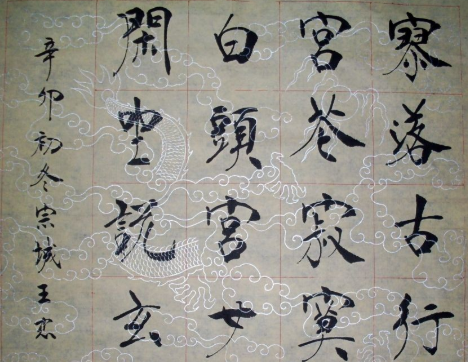 寥落古行
宮花寂寞
白頭宮女
閑坐説玄
辛卯初冬宗城王